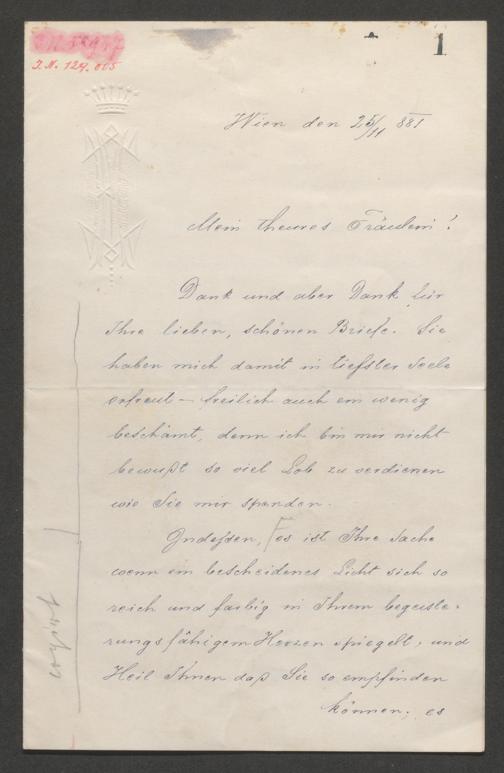 1
J.N. 127.005
Wien den 25/11 881
Mein theures Fräulein!
Dank und aber Dank für
Ihre lieben, schönen Briefe. Sie
haben mich damit in tiefster Seele
erfreut – freilich auch ein wenig
beschämt, denn ich bin mir nicht
bewußt so viel Lob zu verdienen
wie Sie mir spenden.
Indessen, es ist Ihre Sache
wenn ein bescheidenes Licht sich so
reich und farbig in Ihrem begeiste-
rungsfähigem Herzen spiegelt, und
Heil Ihnen daß Sie so empfinden
können; es
copirt